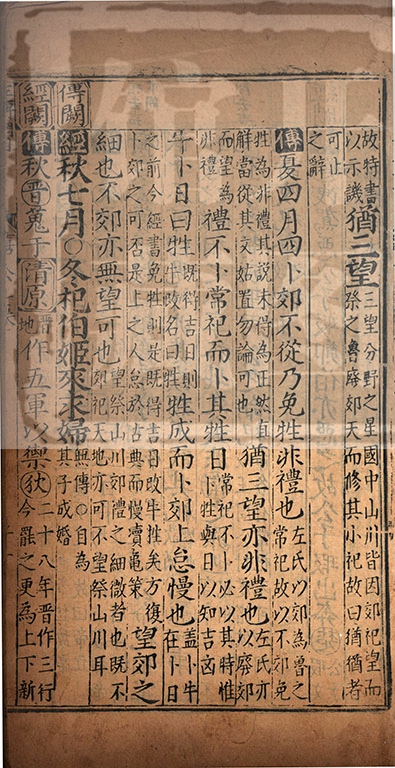 故特書以示譏猶三望三望分野之星國中山川皆因郊祀望而祭之魯廢郊天而修其小祀故曰猶猶者
可止之辭
傳夏四月四卜郊不從乃免牲非禮也左氏以郊為魯之常祀故以不郊免
牲為非禮其說未得為正然自解當從其文姑置勿論可也猶三望亦非禮也左氏亦以廢郊
而望為非禮禮不卜常祀而卜其牲日常祀不卜必以其時惟卜牲與日以知吉凶
牛卜日曰牲既得吉日則牛改名曰牲牲成而卜郊上怠慢也蓋卜牛在卜日
之前今經書免牲則是既得吉日改牛牲矣方復卜郊之可否是上之人怠於古典而慢瀆龜策望郊之
細也不郊亦無望可也望祭山川郊禮之細微者也既不郊祀天地亦可不望祭山川耳
傳闕
經秋七月○冬杞伯姬來求婦無傳○自為其子成婚
經闕
傳秋晉蒐于清原晉地作五軍以禦狄二十八年晉作三行今罷之更為上下新